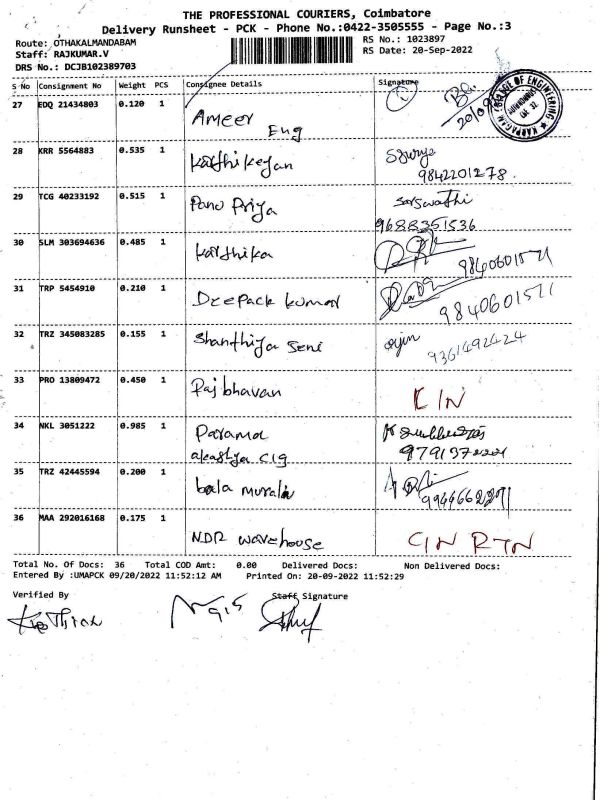 THE PROFESSIONAL COURIERS, Coimbatore
Delivery Runsheet - PCK - Phone No.:0422-3505555 - Page No.:3
Route: OTHAKALMANDABAM
RS No.: 1023897
Staff: RAJKUMAR.V
RS Date: 20-Sep-2022
DRS No.: DCJB102389703
S No Consignment No Weight PCS Consignee Details Signature
27 EDQ 21434803 0.120 1 Ameer Eng
KARPAGAM COLLEGE OF ENGINEERING
28 KRR 5564883 0.535 1 Karthikeyan
9842201278.
29 TCG 40233192 0.515 1 Panu Priya Sarswathi
9688351536
30 SLM 303694636 0.485 1 Karthika
9840601571
31 TRP 5454910 0.210 1 Deepack kumar
9840601571
32 TRZ 345083285 0.155 1 Shanthiya Seni
9361492424
33 PRO 13809472 0.450 1 Rajbhavan CIN
34 NKL 3051222 0.985 1 Parama
35 TRZ 42445594 0.200 1 bala murali
36 MAA 292016168 0.175 1 NDR warehouse CIN RTN
Total No. Of Docs: 36 Total COD Amt: 0.00 Delivered Docs: Non Delivered Docs:
Entered By :UMAPCK 09/20/2022 11:52:12 AM Printed On: 20-09-2022 11:52:29
Verified By Staff Signature